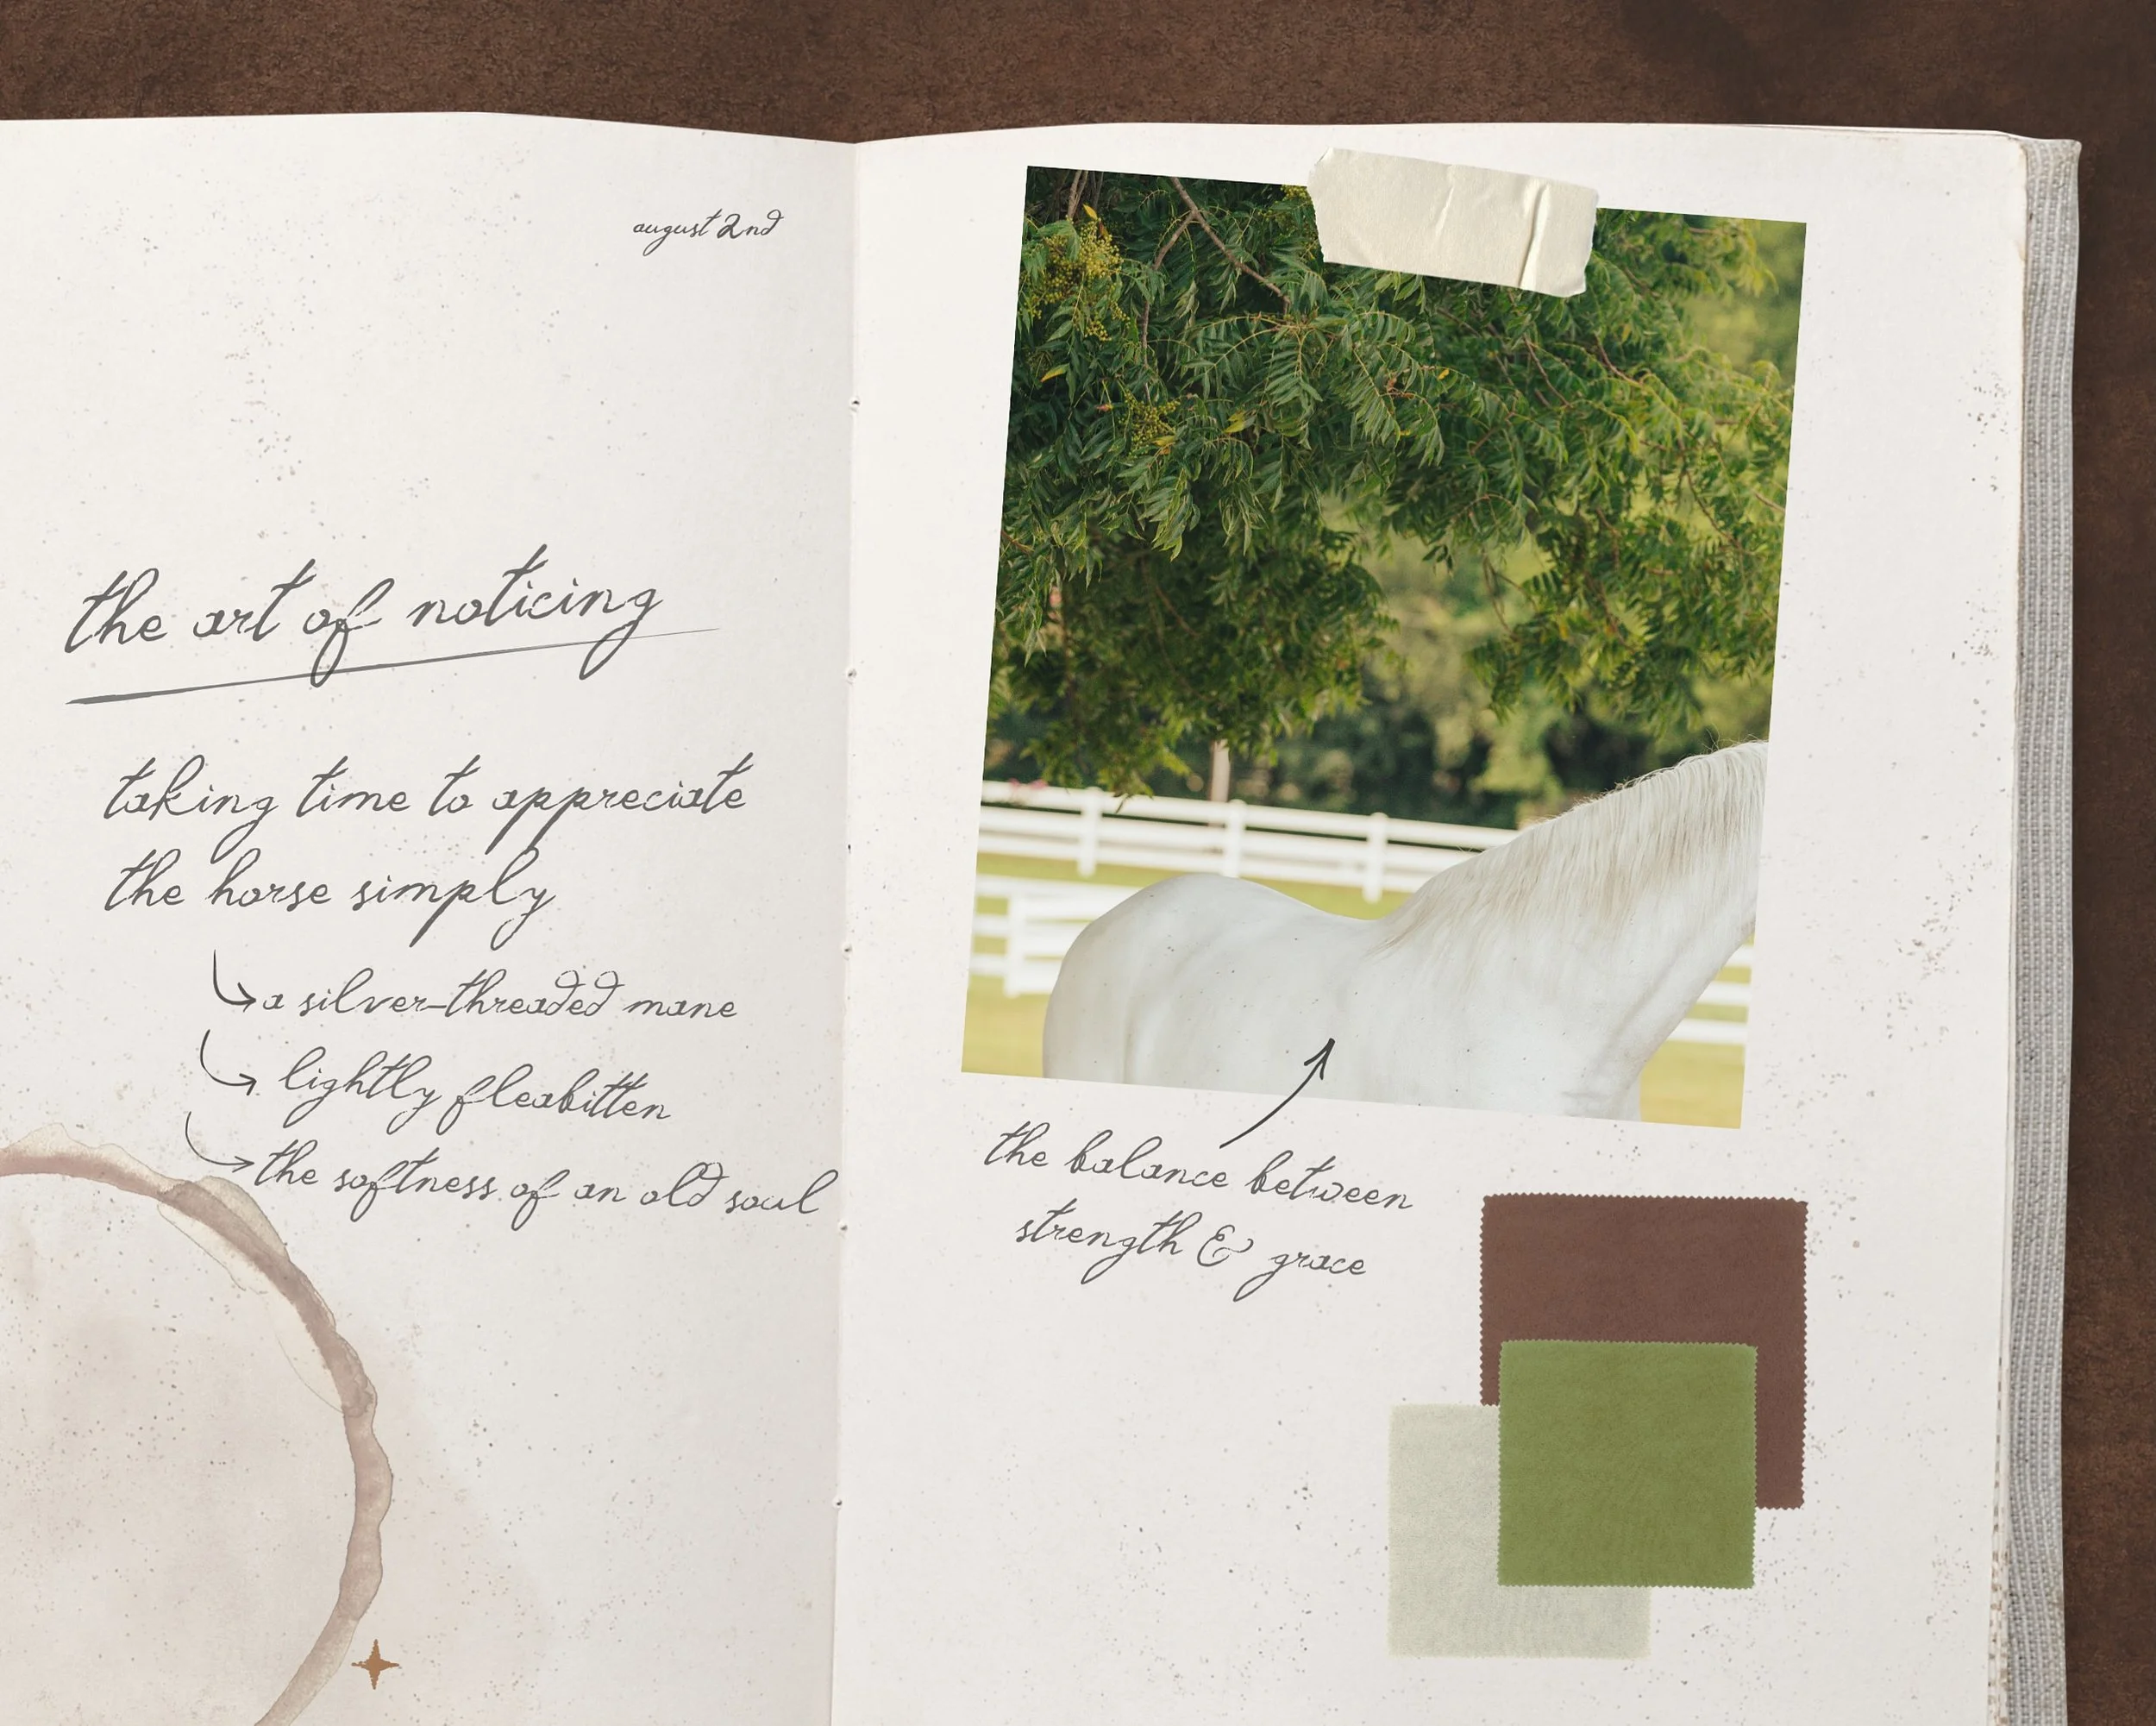 august 2nd
the art of noticing
taking time to appreciate
the horse simply
a silver-threaded mane
lightly fleabitten
the softness of an old soul
the balance between
strength & grace